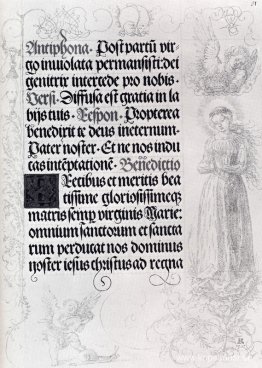 51
Antiphona. Post partū vir-
go inviolata permansisti: dei
genitrix intercede pro nobis.
Versi. Diffusa est gratia in la
bijs tuis. Respon. Propterea
benedixit te deus ineternum.
Pater noster. Et ne nos indu
cas intēptationē. Benedictio
Precibus et meritis bea
tissime gloriosissimeqz
matris semp virginis Marie:
omnium sanctorum et sancta
rum perducat nos dominus
noster iesus christus ad regna